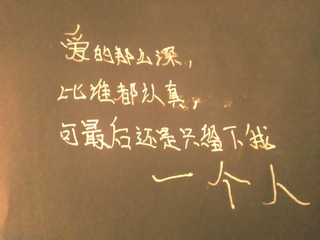 爱的那么深,
比谁都认真,
可最后还是只留下我
一个人